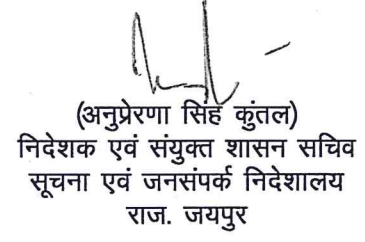 (अनुप्रेरणा सिंह कुंतल)
निदेशक एवं संयुक्त शासन सचिव
सूचना एवं जनसंपर्क निदेशालय
राज. जयपुर